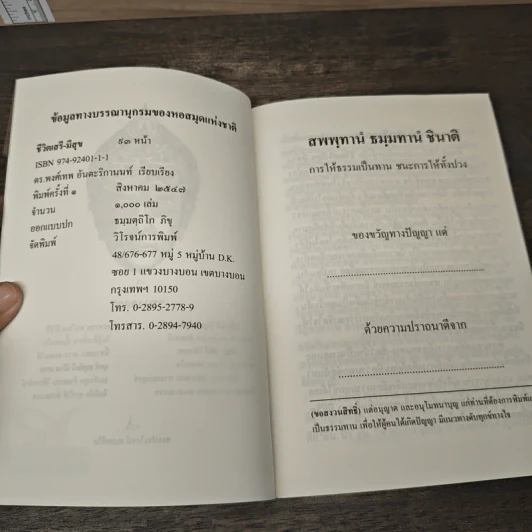 ข้อมูลทางบรรณานุกรมของหอสมุดแห่งชาติ
ชีวิตเสรี-มีสุข ๕๓ หน้า
ISBN 974-92401-1-1
ดร.พงศ์เทพ อันตะริกานนท์ เรียบเรียง
พิมพ์ครั้งที่ ๑ สิงหาคม ๒๕๔๗
จำนวน ๑,๐๐๐ เล่ม
ออกแบบปก ธมฺมตฺถิโก ภิขุ
จัดพิมพ์ วิโรจน์การพิมพ์
48/676-677 หมู่ 5 หมู่บ้าน D.K.
ซอย 1 แขวงบางบอน เขตบางบอน
กรุงเทพฯ 10150
โทร. 0-2895-2778-9
โทรสาร. 0-2894-7940
สพฺพทานํ ธมฺมทานํ ชินาติ
การให้ธรรมเป็นทาน ชนะการให้ทั้งปวง
ของขวัญทางปัญญา แด่
ด้วยความปรารถนาดีจาก
(ขอสงวนสิทธิ์) แต่อนุญาต และอนุโมทนาบุญ แก่ท่านที่ต้องการพิมพ์แ
เป็นธรรมทาน เพื่อให้ผู้อนได้เกิดปัญญา มีแนวทางดับทุกข์ทางใจ